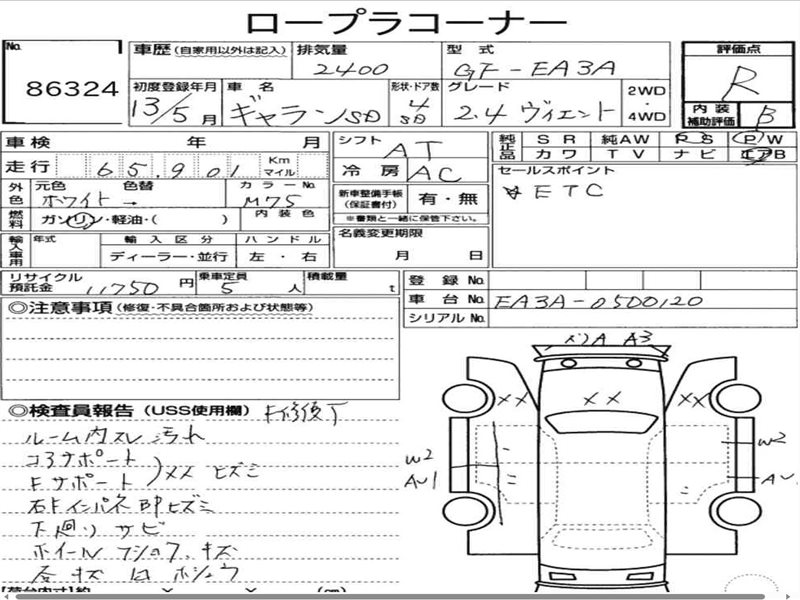 ロープラコーナー
No.
86324
車歴 (自家用以外は記入)
排気量
2400
型式
GF-EA3A
評価点
R
初度登録年月
13/5月
車名
ギャランSD
形状・ドア数
4
SD
グレード
2.4 ヴィエント
2WD
・
4WD
内装
補助評価
B
車検 年 月
走行 65,901 Km
マイル
シフト
AT
冷房
AC
純正品
SR 純AW PS PW
カワ TV ナビ エアB
外色
元色 色替
ホワイト →
カラーNo.
M75
燃料
ガソリン・軽油・( )
内装色
新車整備手帳
(保証書付)
有・無
※書類と一緒に保管下さい。
セールスポイント
ETC
輸入車用
年式
輸入区分
ディーラー・並行
ハンドル
左・右
名義変更期限
月 日
リサイクル
預託金
11750円
乗車定員
5人
積載量
t
登録No.
車台No.
EA3A-0500120
シリアルNo.
◎注意事項 (修復・不具合箇所および状態等)
◎検査員報告 (USS使用欄)
F修復下
ルーム内スレ汚れ
コアサポート
Fサポート
メメ ヒズミ
右Fインパネ部ヒズミ
下廻りサビ
ホイール フショク、キズ
各キズ 凹 ホシュウ
A A3
XX
XX
XX
W2
AU1
W2
AU
【荷台内寸】約 × × (cm)